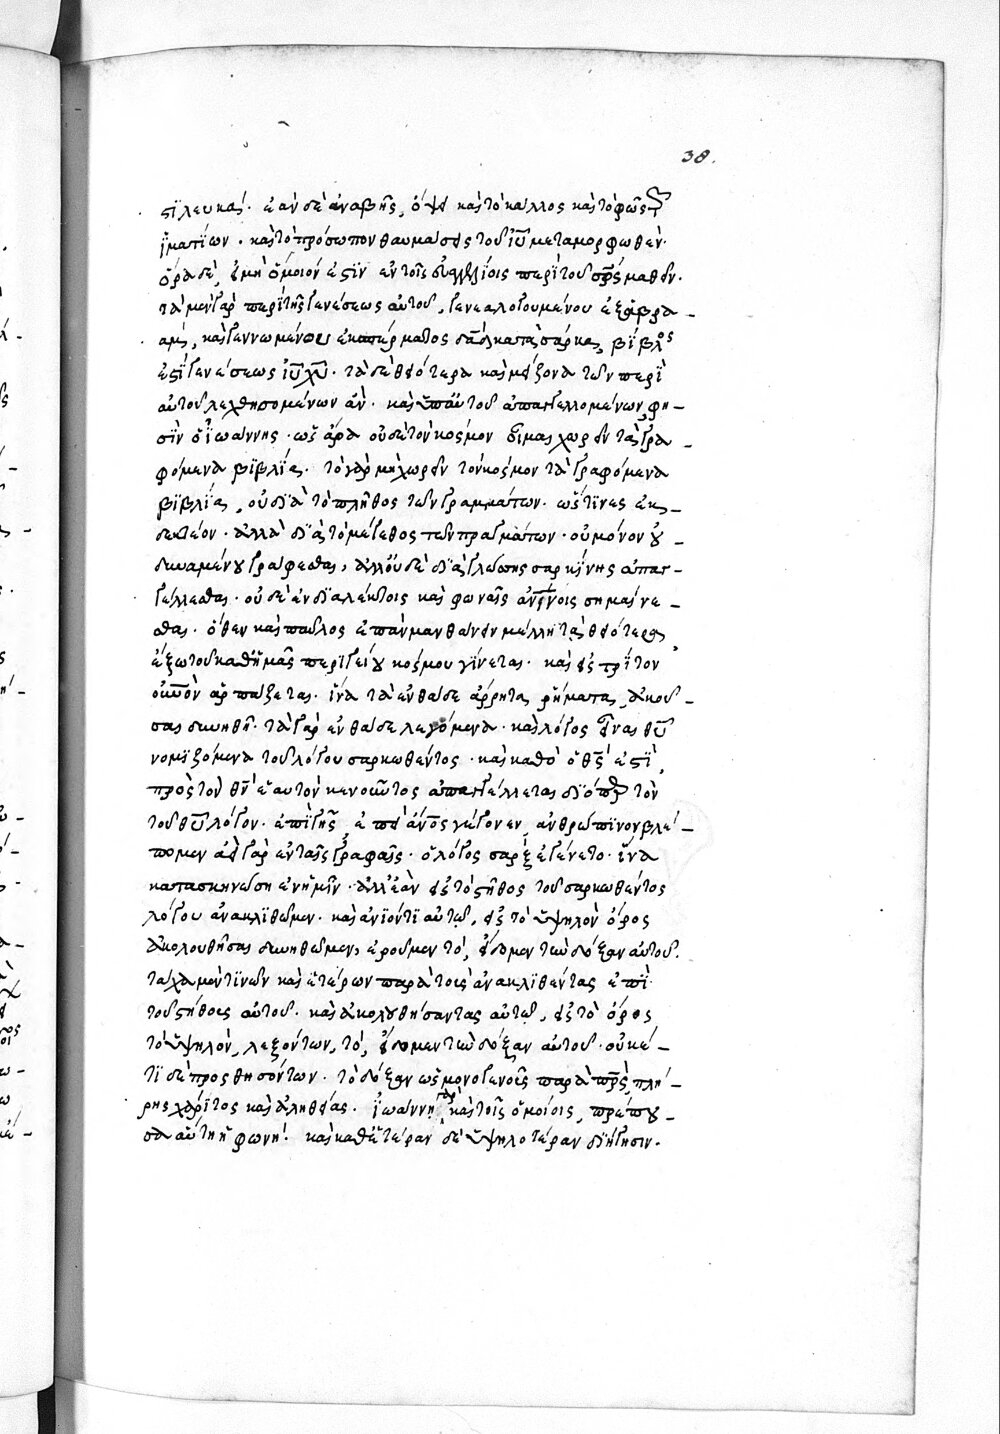 38.
στὶ λευκά· ἐὰν δὲ ἀναβῆς, ὄψει καὶ τὸ κάλλος καὶ τὸ φῶς τῶν
ἱματίων· καὶ τὸ πρόσωπον θαυμάσεις τοῦ ἰῦ μεταμορφωθέν·
ὅρα δὲ, εἰ μὴ ὅμοιόν ἐστιν ἐν τοῖς εὐαγγελίοις περὶ τοῦ σρς μαθεῖν·
τὰ μὲν γὰρ περὶ τῆς γενέσεως αὐτοῦ, γενεαλογουμένου ἐξ ἁβρα -
ὰμ, καὶ γεννωμένου ἐκ σπέρματος δαδ κατὰ σάρκα, βίβλος
ἐστὶ γενέσεως ἰῦ χῦ· τὰ δὲ θειότερα καὶ μείζονα τῶν περὶ
αὐτοῦ λεχθησομένων ἂν· καὶ ὑπ' αὐτοῦ ἀπαγγελλομένων, φη -
σὶν ὁ ἰωάννης· ὡς ἄρα οὐδὲ τὸν κόσμον οἶμαι χωρεῖν τὰ γρα -
φόμενα βιβλία· τὸ γὰρ μὴ χωρεῖν τὸν κόσμον τὰ γραφόμενα
βιβλία, οὐ διὰ τὸ πλῆθος τῶν γραμμάτων· ὥς τινες ἐκ -
δεκτέον· ἀλλὰ διὰ τὸ μέγεθος τῶν πραγμάτων· οὐ μόνον οὐ -
δυναμένου γράφεσθαι, ἀλλ' οὐδὲ διὰ γλώσσης σαρκίνης ἀπαγ -
γέλλεσθαι· οὐδὲ ἐν διαλέκτοις καὶ φωναῖς ἀνθρωπίνοις σημαίνε -
σθαι· ὅθεν καὶ παῦλος ἐπὰν μανθάνειν μέλλῃ τὰ θειότερα,
ἔξω τοῦ καθ' ἡμᾶς περιγείου κόσμου γίνεται· καὶ εἰς τρίτον
οὐνὸν ἁρπάζεται· ἵνα τὰ ἐνθάδε ἄρρητα ῥήματα, ἀκού -
σαι δυνηθῆ· τὰ γὰρ ἐνθάδε λεγόμενα· καὶ λόγος εἶναι θῦ
νομιζόμενα τοῦ λόγου σαρκωθέντος· καὶ καθὸ ὁ θς ἐστὶ,
πρὸς τὸν θν ἑαυτὸν κενοῦντος ἀπαγγέλλεται διόπερ τὸν
τοῦ θῦ λόγον· ἐπὶ γῆς, ἐπεὶ ἄνος γέγονεν, ἀνθρώπινον βλέ -
πομεν ἀεὶ γὰρ ἐν ταῖς γραφαῖς· ὁ λόγος σὰρξ ἐγένετο· ἵνα
κατασκηνώσῃ ἐν ἡμῖν· ἀλλ' ἐὰν εἰς τὸ στῆθος τοῦ σαρκωθέντος
λόγου ἀνακλιθῶμεν· καὶ ἀνιόντι αὐτῷ, εἰς τὸ ὑψηλὸν ὄρος
ἀκολουθῆσαι δυνηθῶμεν, ἐροῦμεν τὸ, εἴδομεν τὴν δόξαν αὐτοῦ·
τάχα μέν τινων καὶ ἑτέρων παρὰ τοὺς ἀνακλιθέντας ἐπὶ
τοῦ στήθους αὐτοῦ· καὶ ἀκολουθήσαντας αὐτῷ, εἰς τὸ ὄρος
τὸ ὑψηλὸν, λεξόντων, τὸ, εἴδομεν τὴν δόξαν αὐτοῦ· οὐκέ -
τι δὲ προσθησόντων· τὸ δόξαν ὡς μονογενοῦς παρὰ πρς, πλή -
ρης χάριτος καὶ ἀληθείας· ἰωάννῃ γὰρ καὶ τοῖς ὁμοίοις, πρέπου -
σα αὕτη ἡ φωνή· καὶ καθ' ἑτέραν δὲ ὑψηλοτέραν διήγησιν·